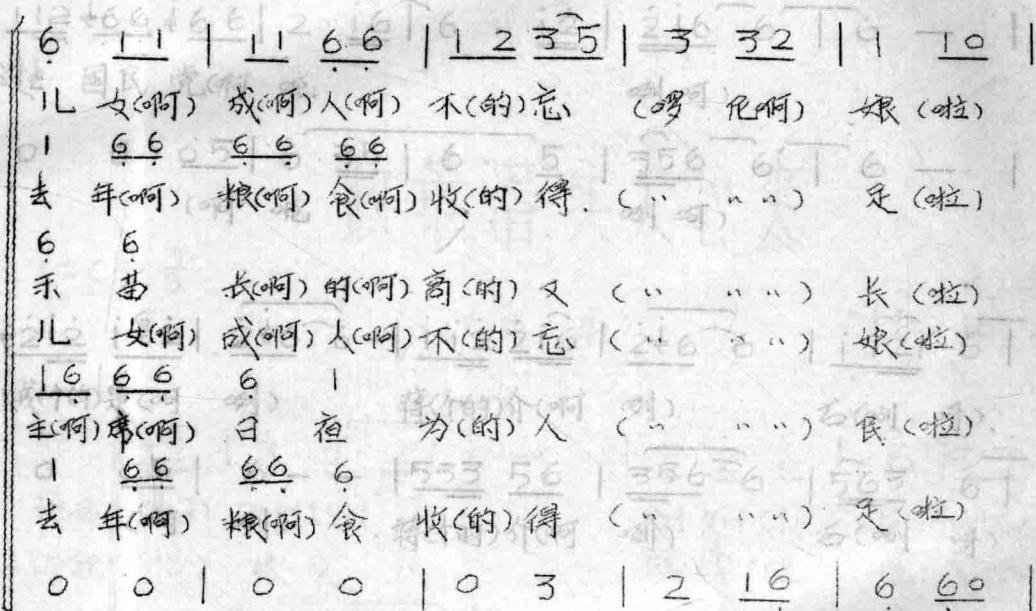 6̣ 1 1 | 1 1 6̣ 6̣ | 1 2 3 5 | 3 3 2 | 1 1 0 |
儿 女(啊) 成(啊)人(啊) 不(的)忘 (啰 陀啊) 娘(啦)
1 6̣ 6̣ 6̣ 6̣ 6̣ 6̣
去 年(啊) 粮(啊)食(啊)收(的)得 (〃 〃〃) 足(啦)
6̣ 6̣
禾 苗 长(啊)的(啊)高(的)又 (〃 〃〃) 长(啦)
儿 女(啊) 成(啊)人(啊)不(的)忘 (〃 〃〃) 娘(啦)
1 6̣ 6̣ 6̣ 6̣ 1
主(啊)席(啊) 日 夜 为(的)人 (〃 〃〃) 民(啦)
1 6̣ 6̣ 6̣ 6̣ 6̣
去 年(啊) 粮(啊)食 收(的)得 (〃 〃〃) 足(啦)
0 0 | 0 0 | 0 3 | 2 1 6̣ | 6̣ 6̣ 0 |